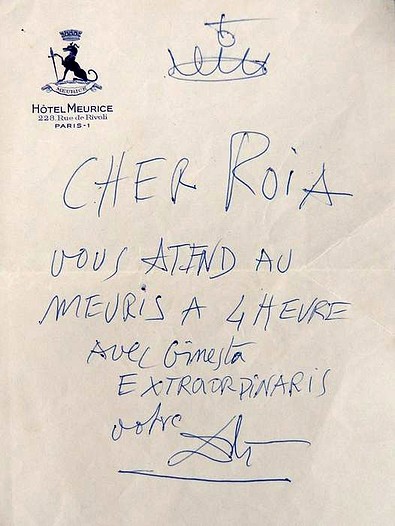 MEURICE
HÔTEL MEURICE
228, Rue de Rivoli
PARIS-1
CHER ROiA
VOUS ATEND AU
MEURIS A 4 HEURE
AVEC Ginesta
EXTRAORDINARIS
votre